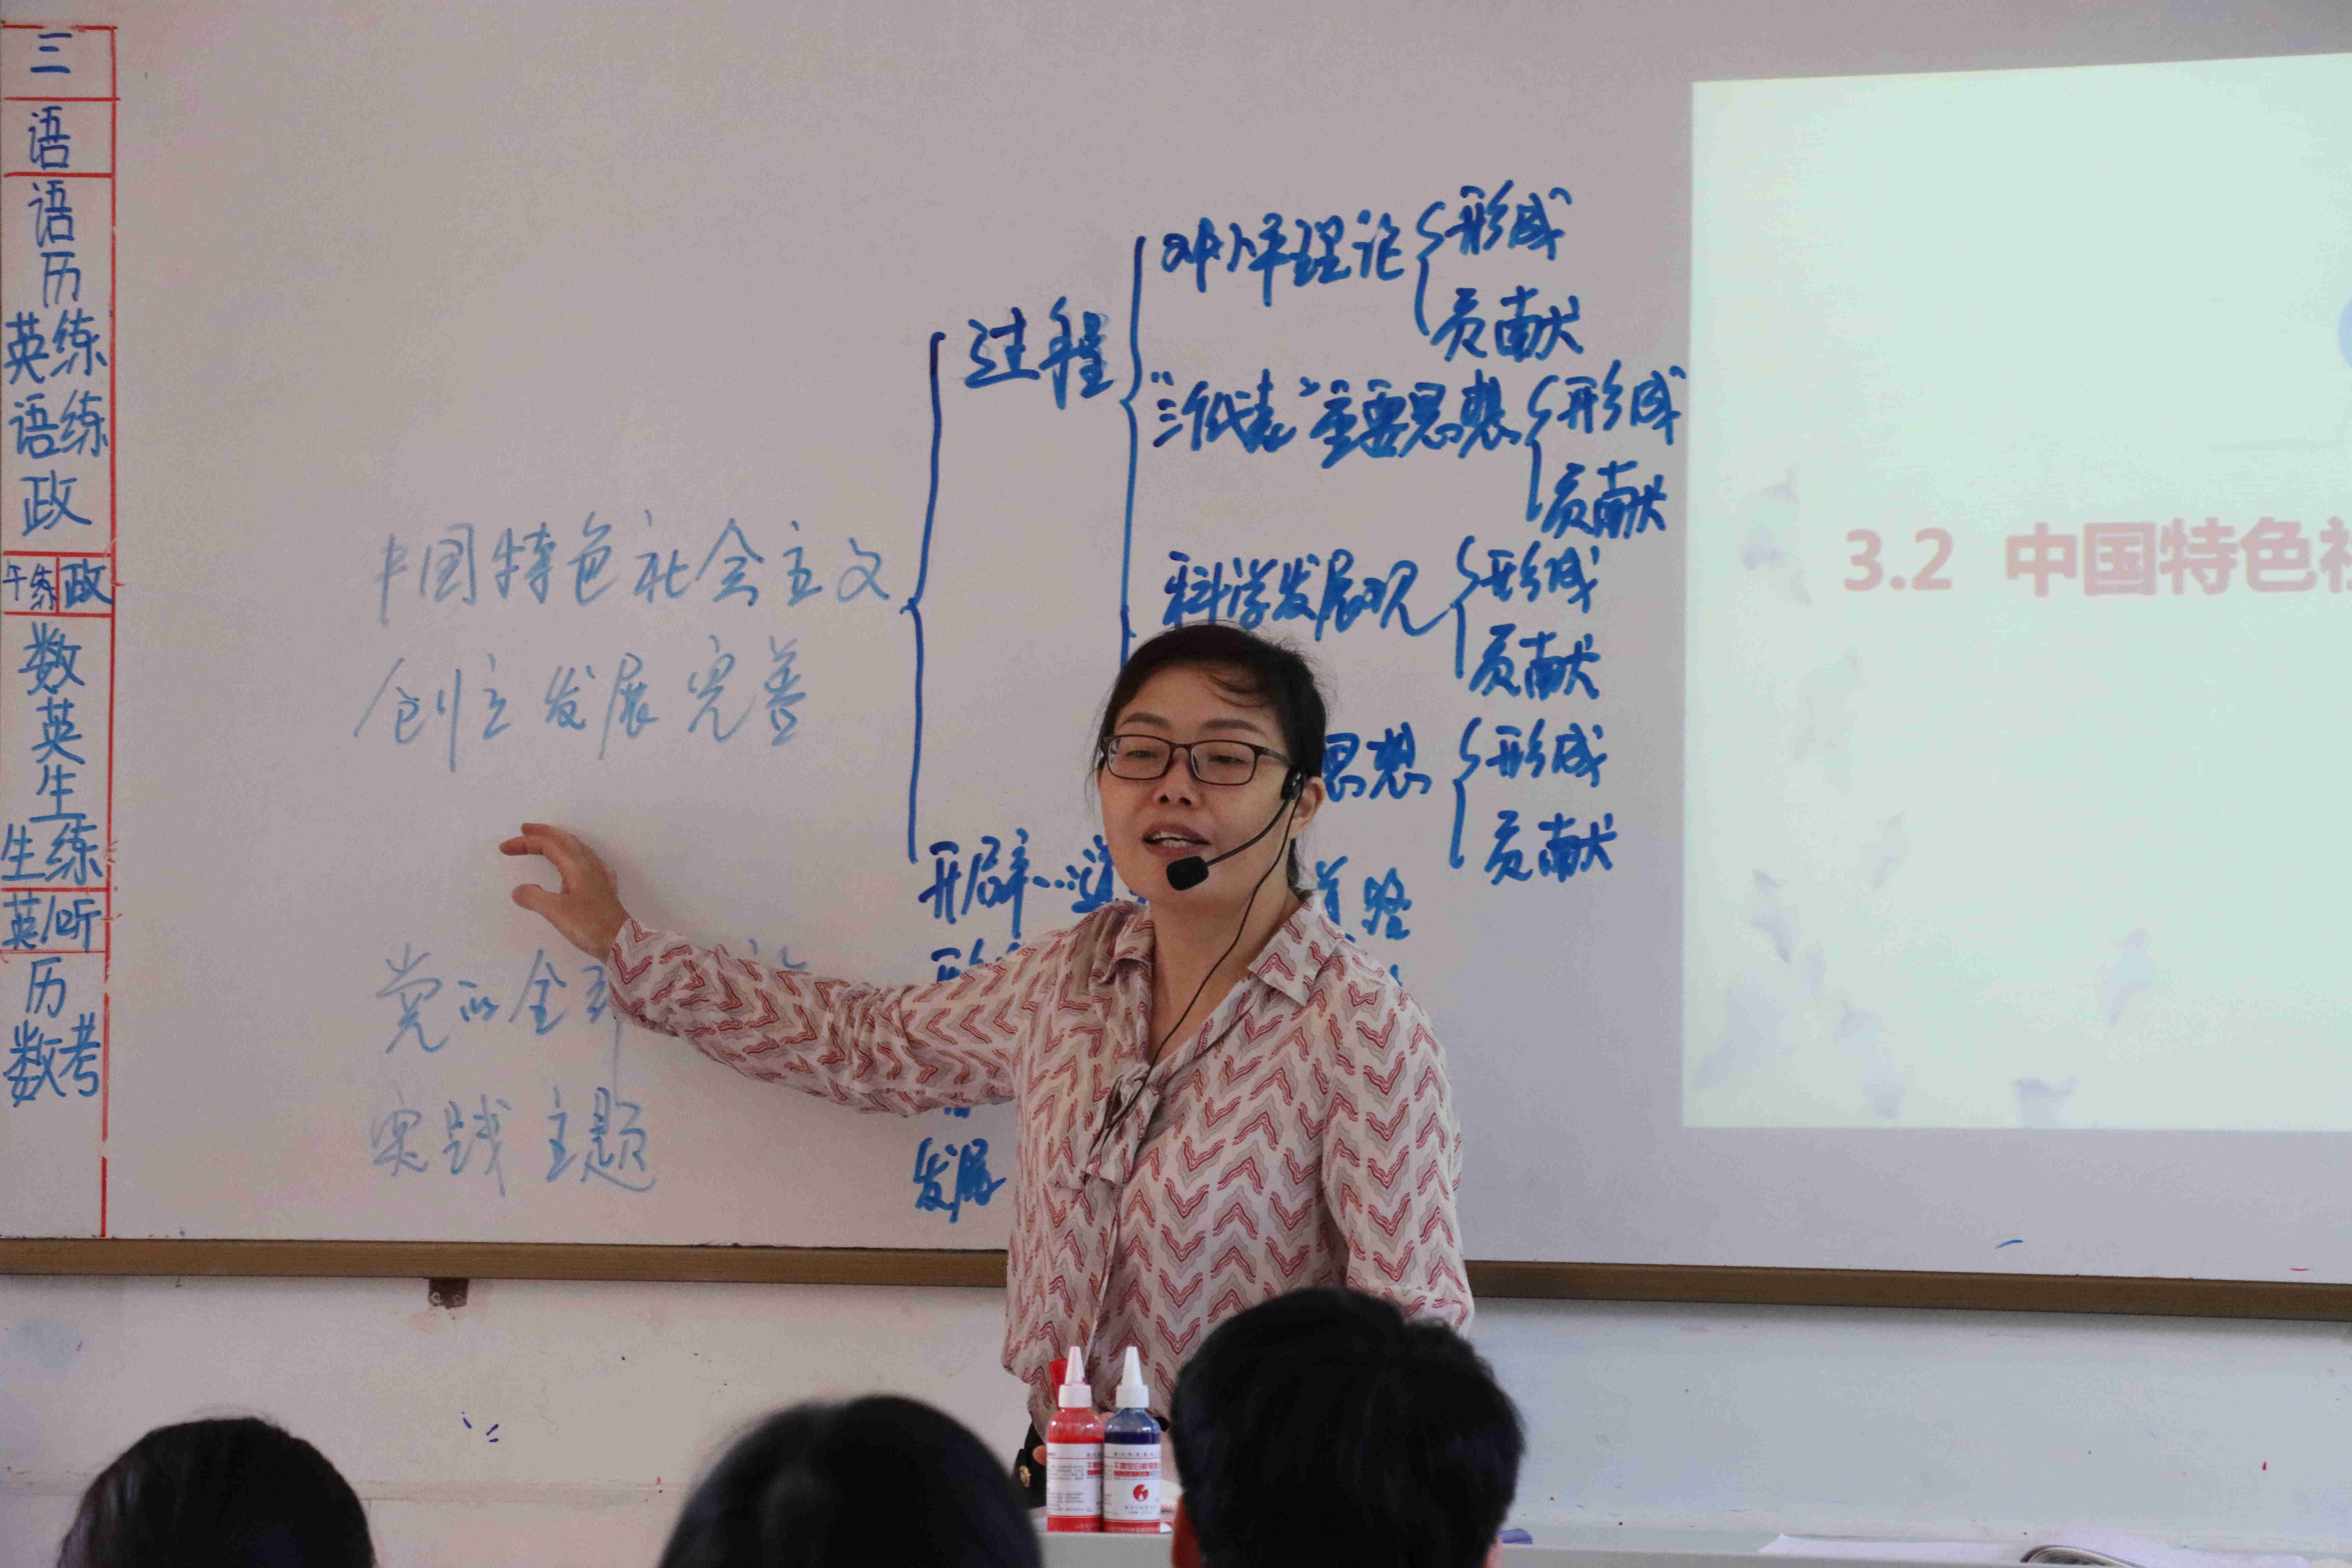 三
语
语
历
英练
语练
政
午练 政
数
英
生
生练
英听
历
数考
中国特色社会主义
创立发展完善
党的全
实践主题
过程
邓小平理论
形成
贡献
“三个代表”重要思想
形成
贡献
科学发展观
形成
贡献
思想
形成
贡献
开辟…道
道路
发展
3.2 中国特色社